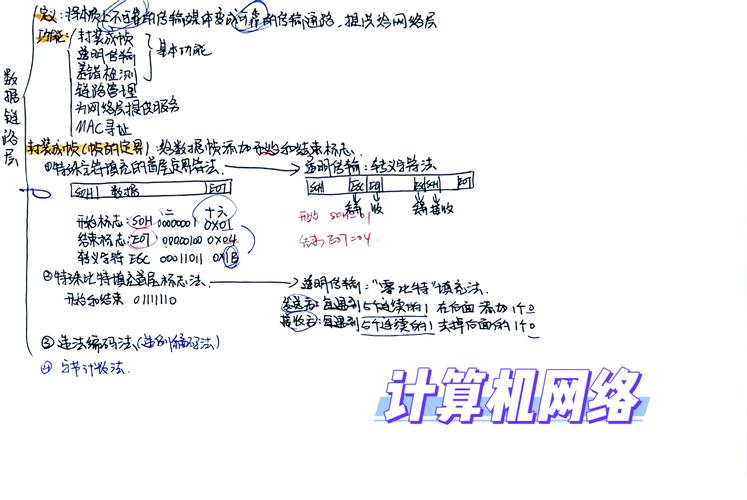 数据链路层
定义:将本质上不可靠的传输媒体变成可靠的传输通路,提供给网络层
功能:
封装成帧
透明传输
差错检测
基本功能
链路管理
为网络层提供服务
MAC寻址
封装成帧(帧的定界):给数据帧添加开始和结束标志.
①特殊字符填充的首尾定界符法. 透明传输:转义字符法
SOH 数据 EOT
SOH ESC EOT ESC SOH EOT
接收
二 十六
开始标志:SOH 00000001 0X01
结束标志:EOT 00000100 0X04
转义字符 ESC 00011011 0X1B
开始 SOH=01
结束 EOT=04.
②特殊比特填充首尾标志法. 透明传输:"零比特"填充法.
开始和结束 01111110
发送方:每遇到5个连续的1 在后面添加1个0
接收方:每遇到5个连续的1 去掉后面的1个0
③违法编码法(违例编码法)
④字节计数法.
计算机网络